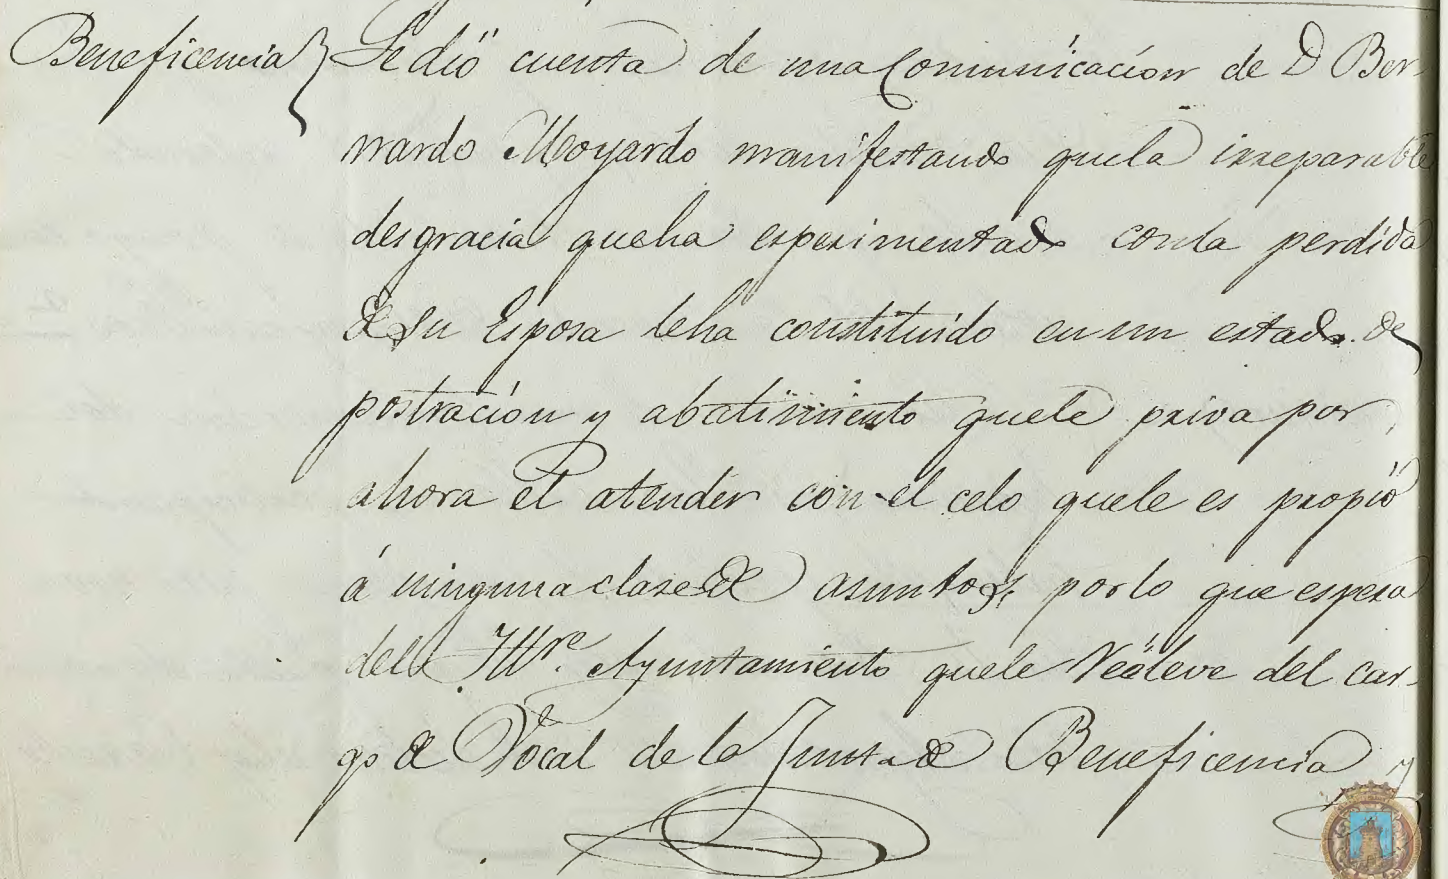 Beneficencia } Se dió cuenta de una Comunicación de D Ber-
nardo Moyardo manifestando quela irreparable
desgracia queha esperimentado conla perdida
de su Esposa leha constituido enun estado de
postración y abatimiento quele priva por
ahora el atender con el celo quele es propio
á ninguna clase de asuntos, por lo que espera
del Iltre. Ayuntamiento quele reeleve del car-
go de Vocal de la Junta de Beneficencia y